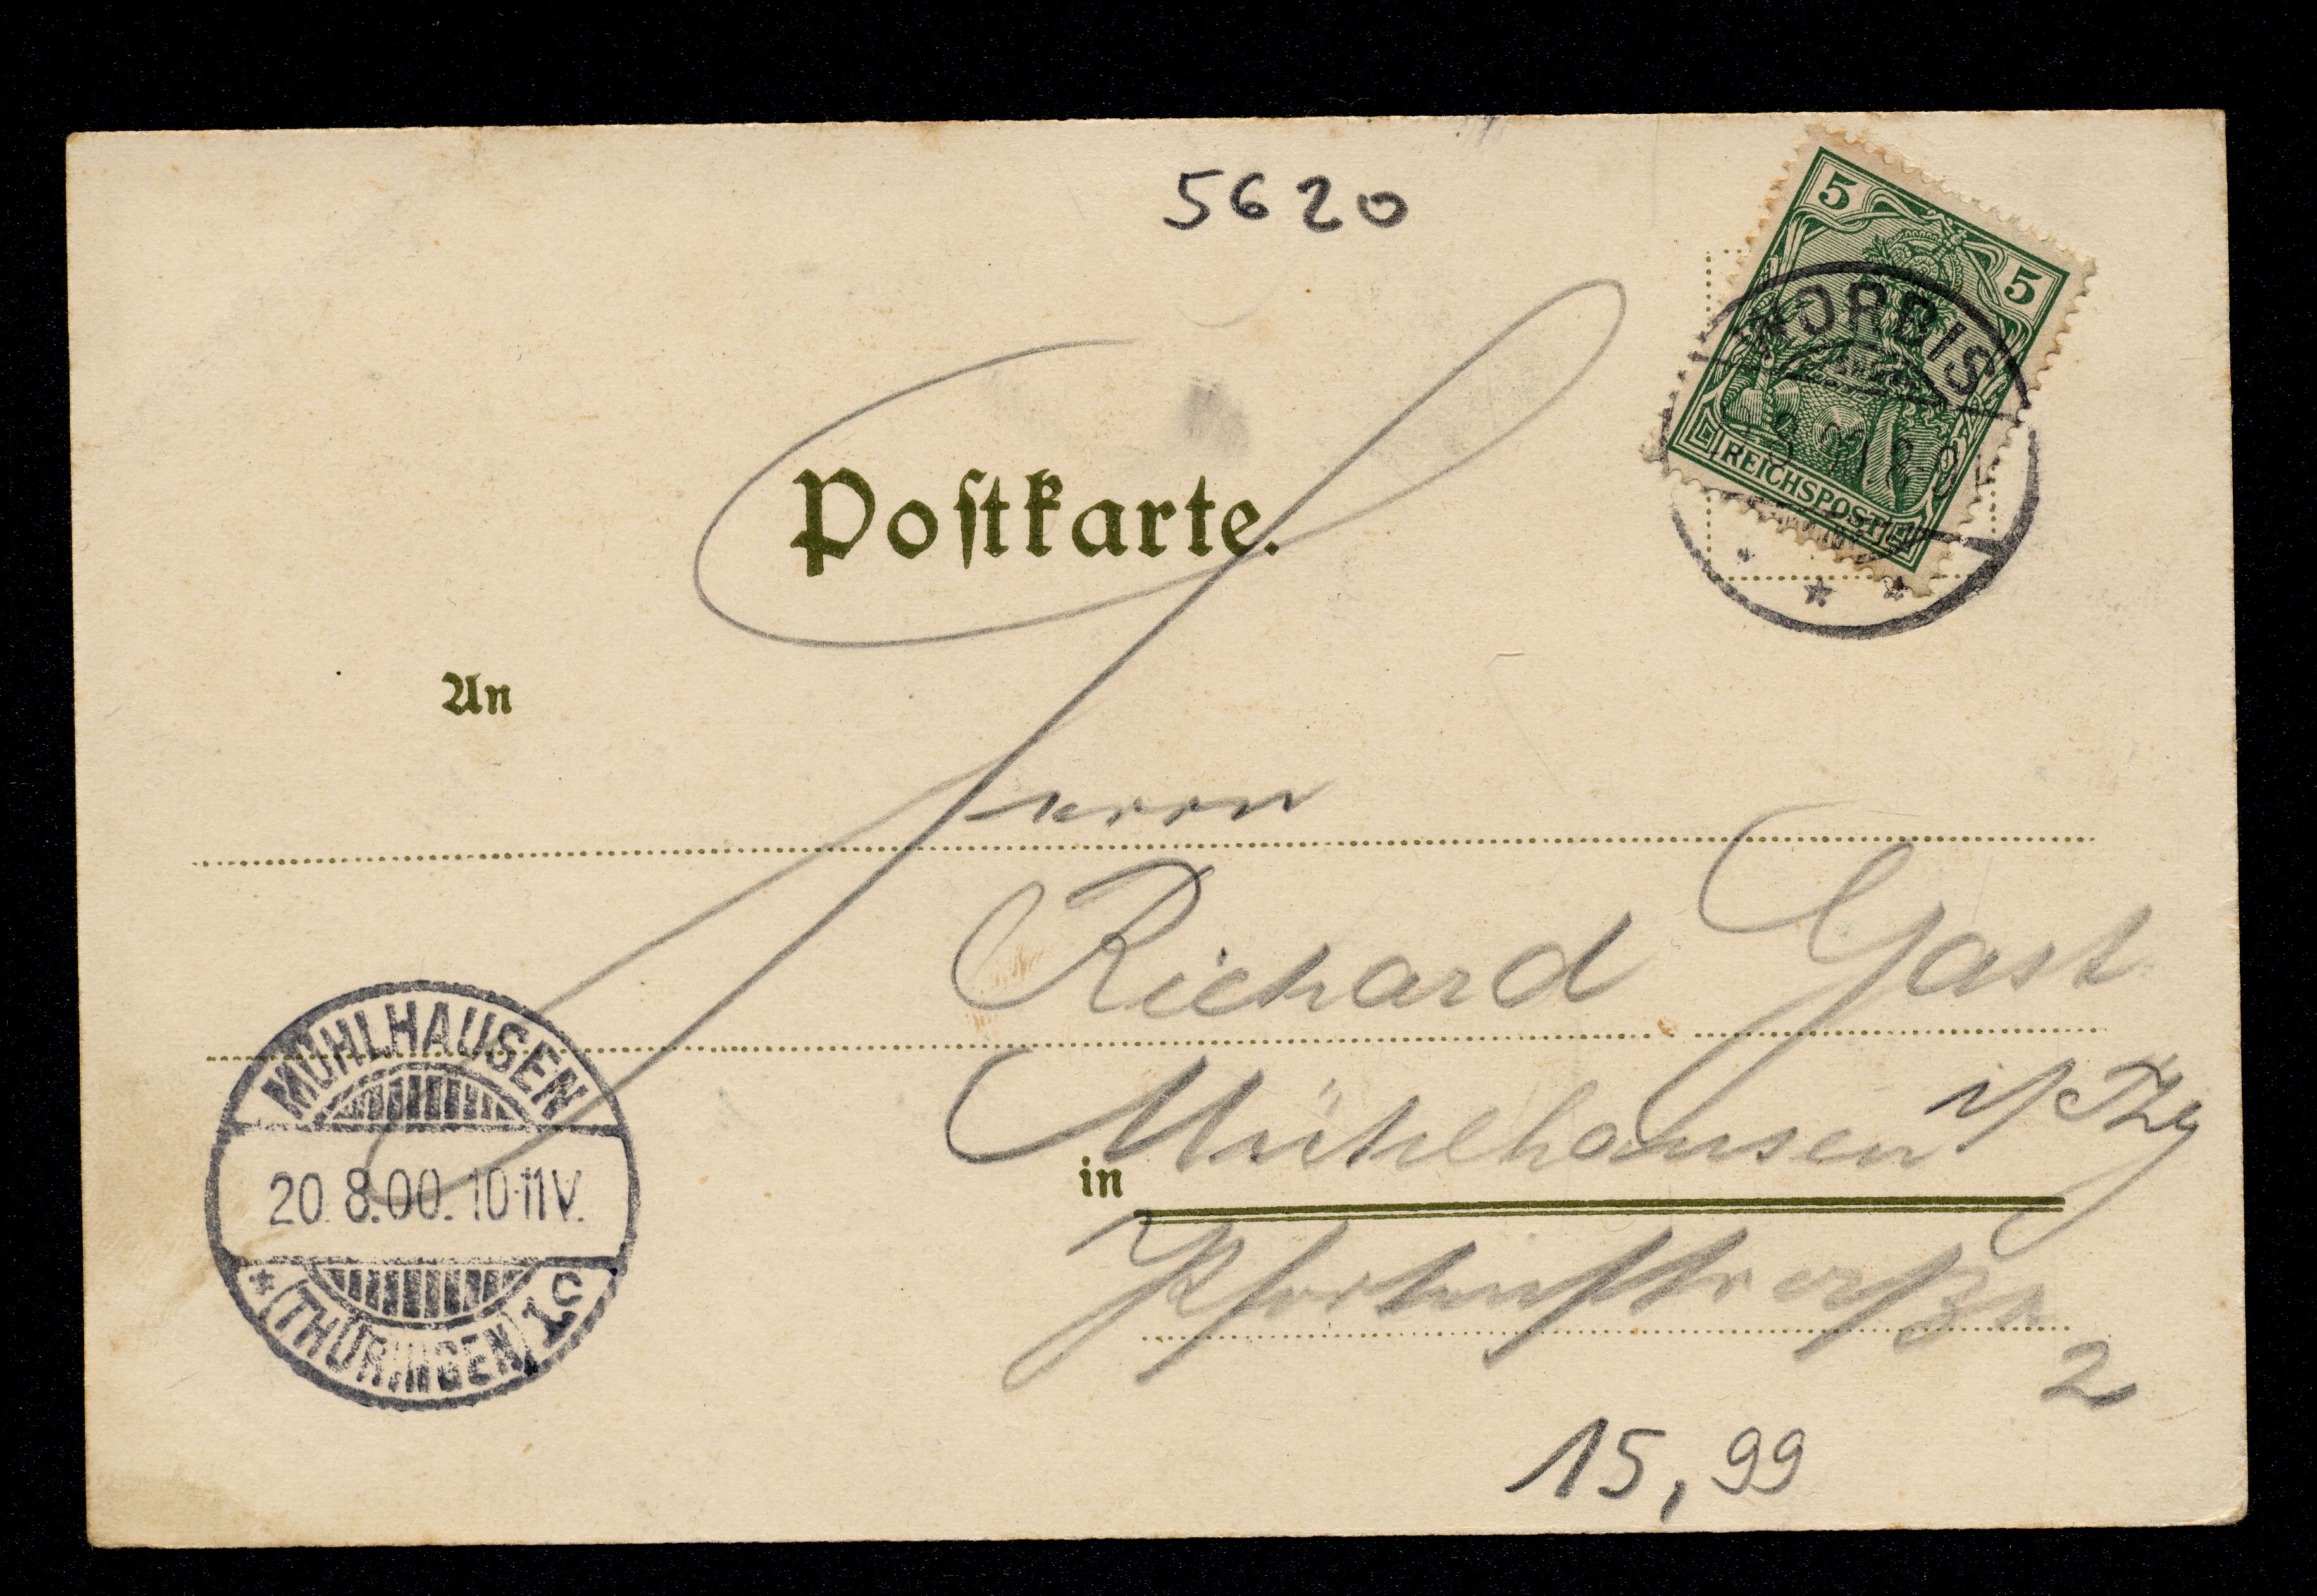 5620
5
5
WORBIS
REICHSPOST
Postkarte.
An
Herrn
Richard Gast
Mühlhausen i/Thg
in
Pfortenstraße
2
MÜHLHAUSEN
20.8.00.10-11V.
* (THÜRINGEN) 1c
15,99